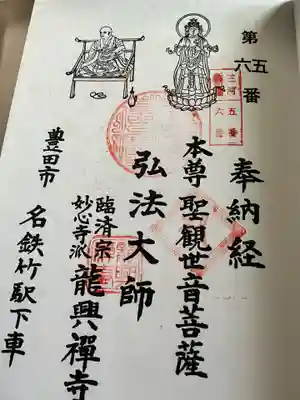 第五六番
三河
五番
六番
奉納経
本尊 聖観世音菩薩
弘法大師
臨済宗
妙心寺派
龍興禅寺
豊田市
名鉄竹駅下車